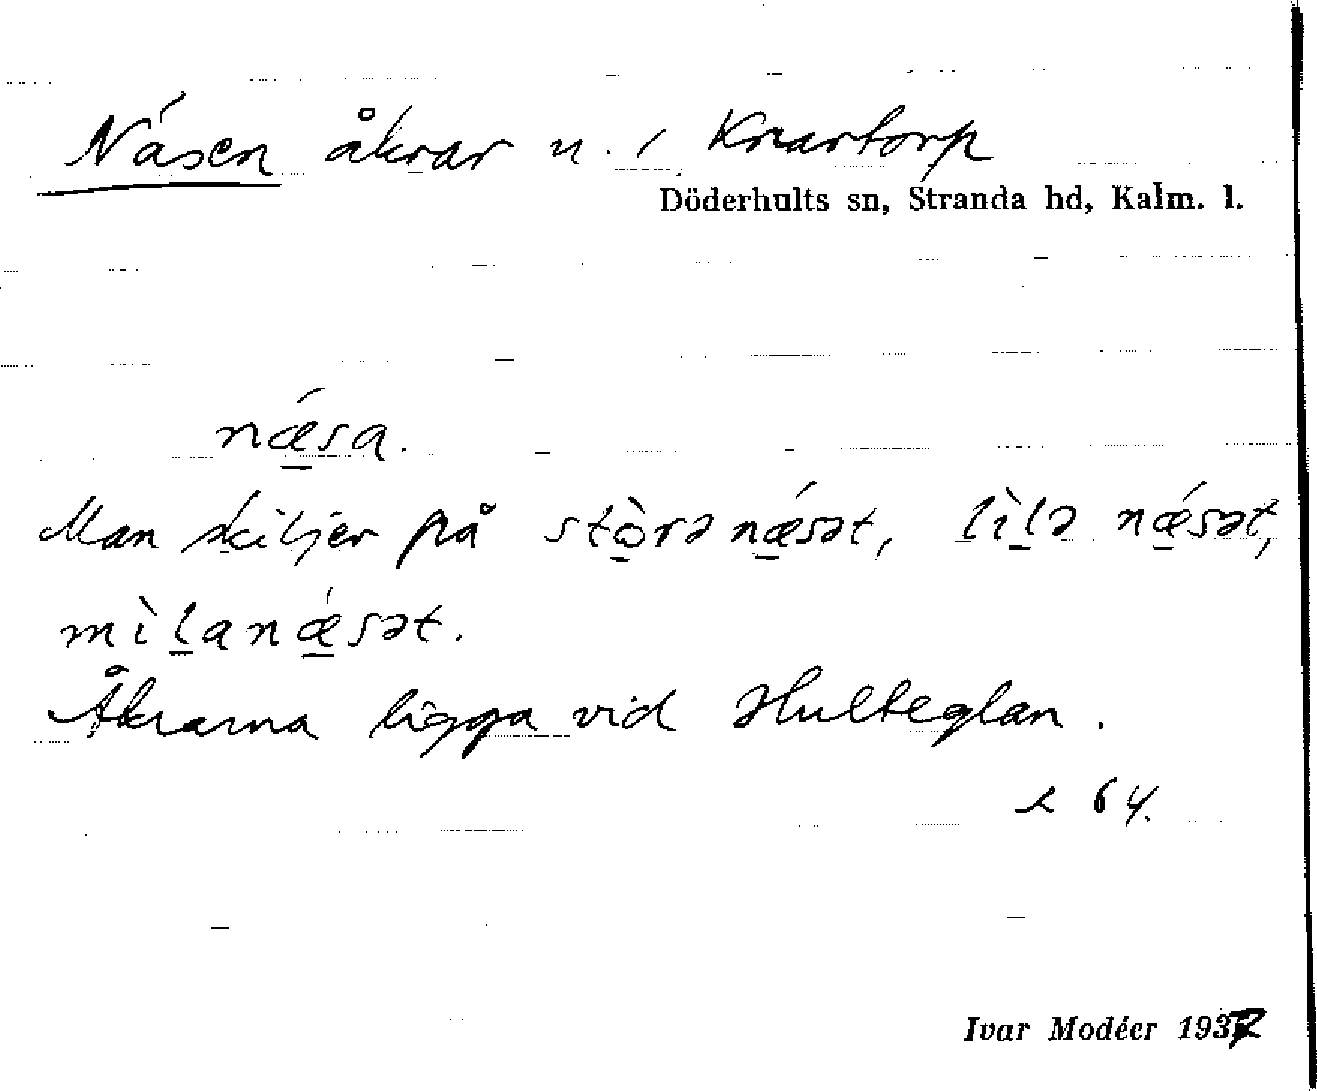 Näsen åkrar n. i Knartorp
Döderhults sn, Stranda hd, Kalm. l.
nǽ̱sa.
Man skiljer på stò̱rə nǽ̱sət, lìḻə nǽ̱sət,
mìḻanǽ̱sət.
Åkrarna ligga vid Hulteglan.
64.
Ivar Modéer 1937